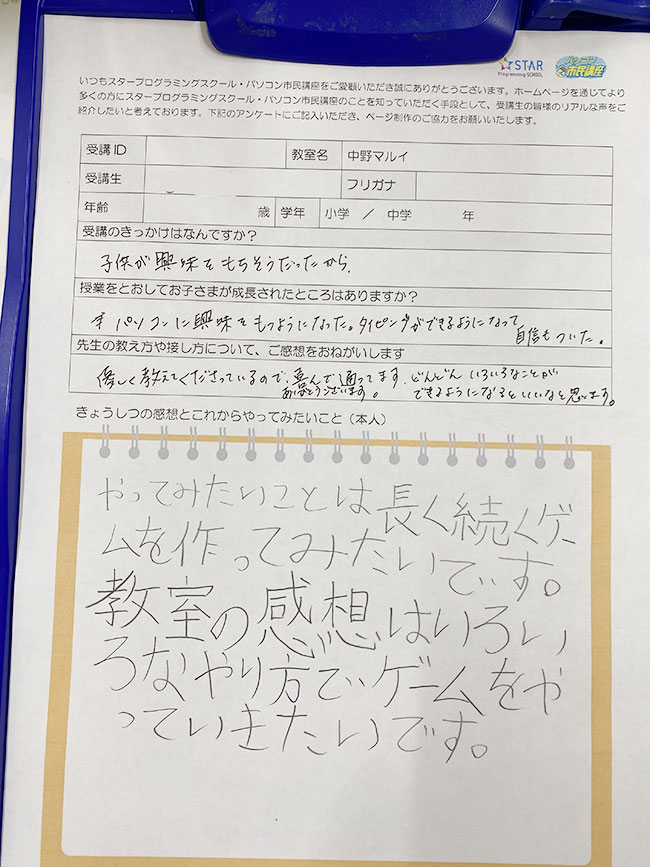 STAR
Programming SCHOOL
パソコン
市民講座
いつもスタープログラミングスクール・パソコン市民講座をご愛顧いただき誠にありがとうございます。ホームページを通じてより
多くの方にスタープログラミングスクール・パソコン市民講座のことを知っていただく手段として、受講生の皆様のリアルな声をご
紹介したいと考えております。下記のアンケートにご記入いただき、ページ制作のご協力をお願いいたします。
受講ID 教室名 中野マルイ
受講生 フリガナ
年齢 歳 学年 小学 ／ 中学 年
受講のきっかけはなんですか？
子供が興味をもちそうだったから.
授業をとおしてお子さまが成長されたところはありますか？
パソコンに興味をもつようになった。タイピングができるようになって
自信もついた。
先生の教え方や接し方について、ご感想をおねがいします
優しく教えてくださっているので、喜んで通ってます.
ありがとうございます。
どんどん いろいろなことが
できるようになるといいなと思います。
きょうしつの感想とこれからやってみたいこと（本人）
やってみたいことは長く続くゲー
ムを作ってみたいです。
教室の感想はいろい
ろなやり方でゲームをや
っていきたいです。